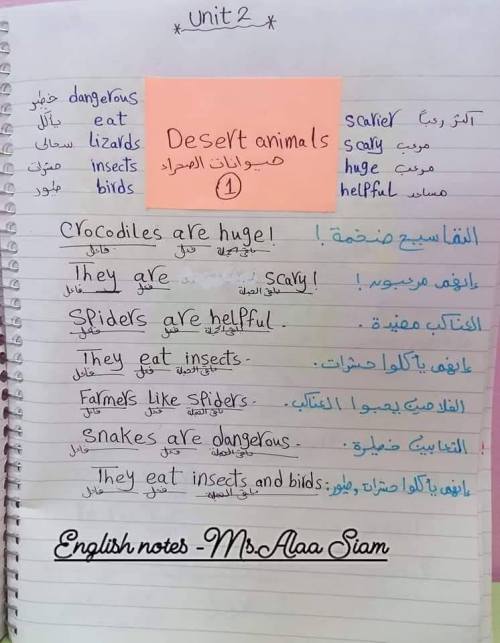 * Unit 2 *
خطِر dangerous
يأكل eat
سحالى lizards
حشرات insects
طيور birds
Desert animals
حيوانات الصحراء
1
scarier أكثر رعباً
scary مرعب
huge مرعب
helpful مساعد
Crocodiles are huge! التماسيح ضخمة!
فاعل فعل باقى الجملة
They are scary! إنهم مرعبون!
فاعل فعل باقى الجملة
Spiders are helpful. العناكب مفيدة.
فاعل فعل باقى الجملة
They eat insects. إنهم يأكلوا حشرات.
فاعل فعل باقى الجملة
Farmers like spiders. الفلاحين يحبوا العناكب.
فاعل فعل باقى الجملة
Snakes are dangerous. الثعابين خطيرة.
فاعل فعل باقى الجملة
They eat insects and birds: إنهم يأكلوا حشرات, طيور
فاعل فعل باقى الجملة
English notes -Ms.Alaa Siam